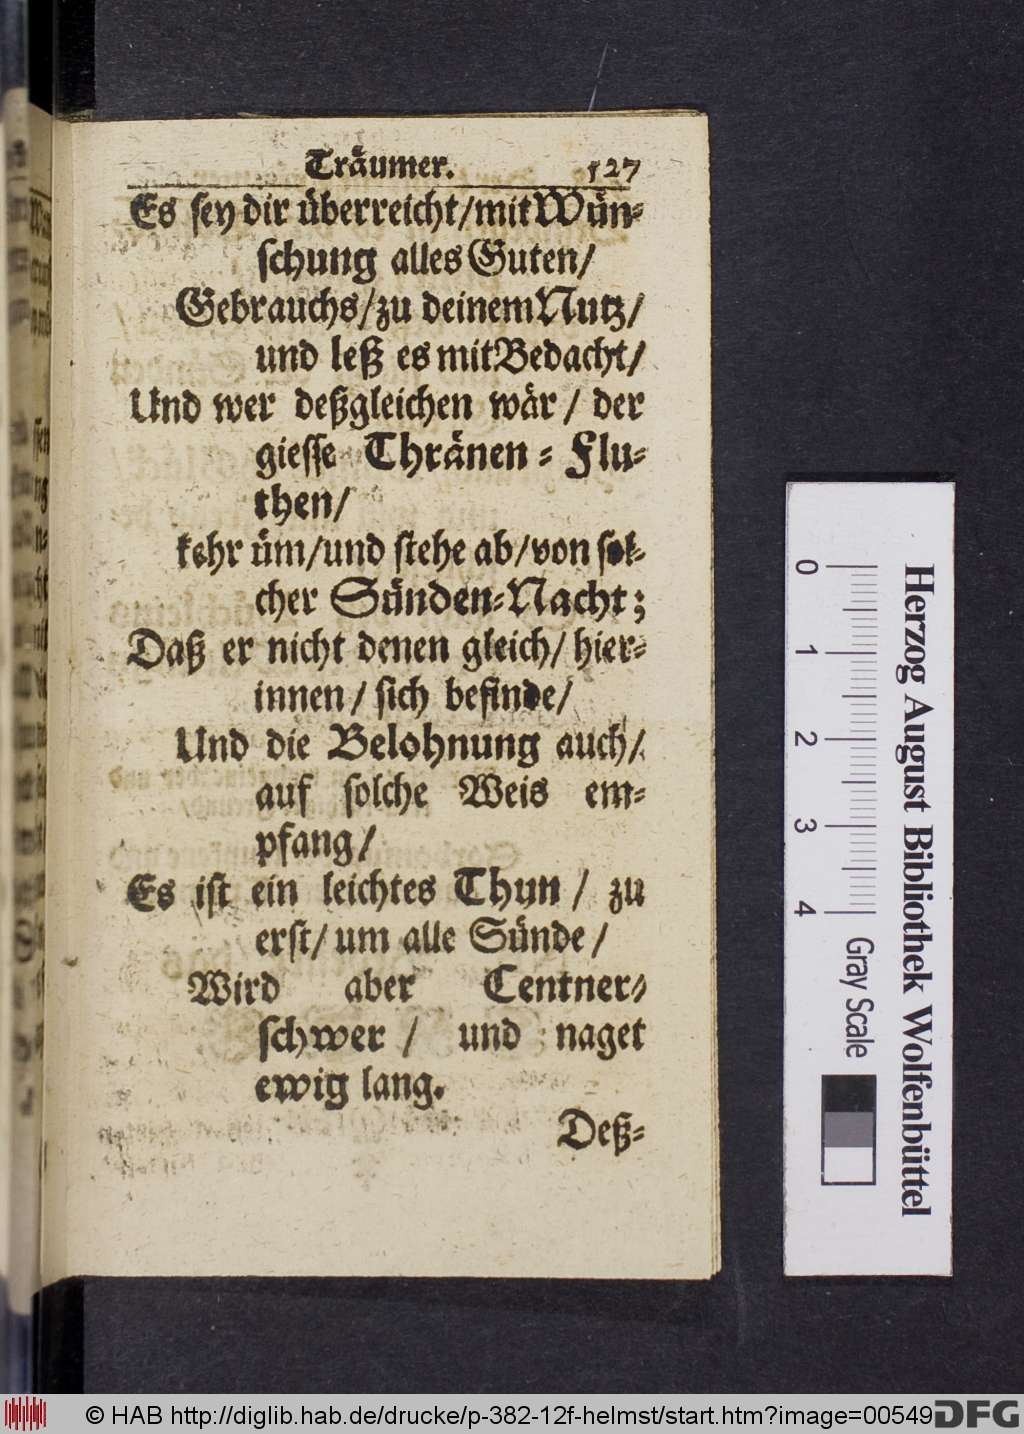 Träumer. 527
Es sey dir überreicht/mit Wün-
schung alles Guten/
Gebrauchs/zu deinem Nutz/
und leß es mit Bedacht/
Und wer deßgleichen wär/ der
giesse Thränen-Flu-
then/
kehr üm/und stehe ab/von sol-
cher Sünden-Nacht;
Daß er nicht denen gleich/ hier-
innen/ sich befinde/
Und die Belohnung auch/
auf solche Weis em-
pfang/
Es ist ein leichtes Thun/ zu
erst/ um alle Sünde/
Wird aber Centner-
schwer/ und naget
ewig lang.
Deß-
0 1 2 3 4 Gray Scale
Herzog August Bibliothek Wolfenbüttel
© HAB http://diglib.hab.de/drucke/p-382-12f-helmst/start.htm?image=00549
DFG